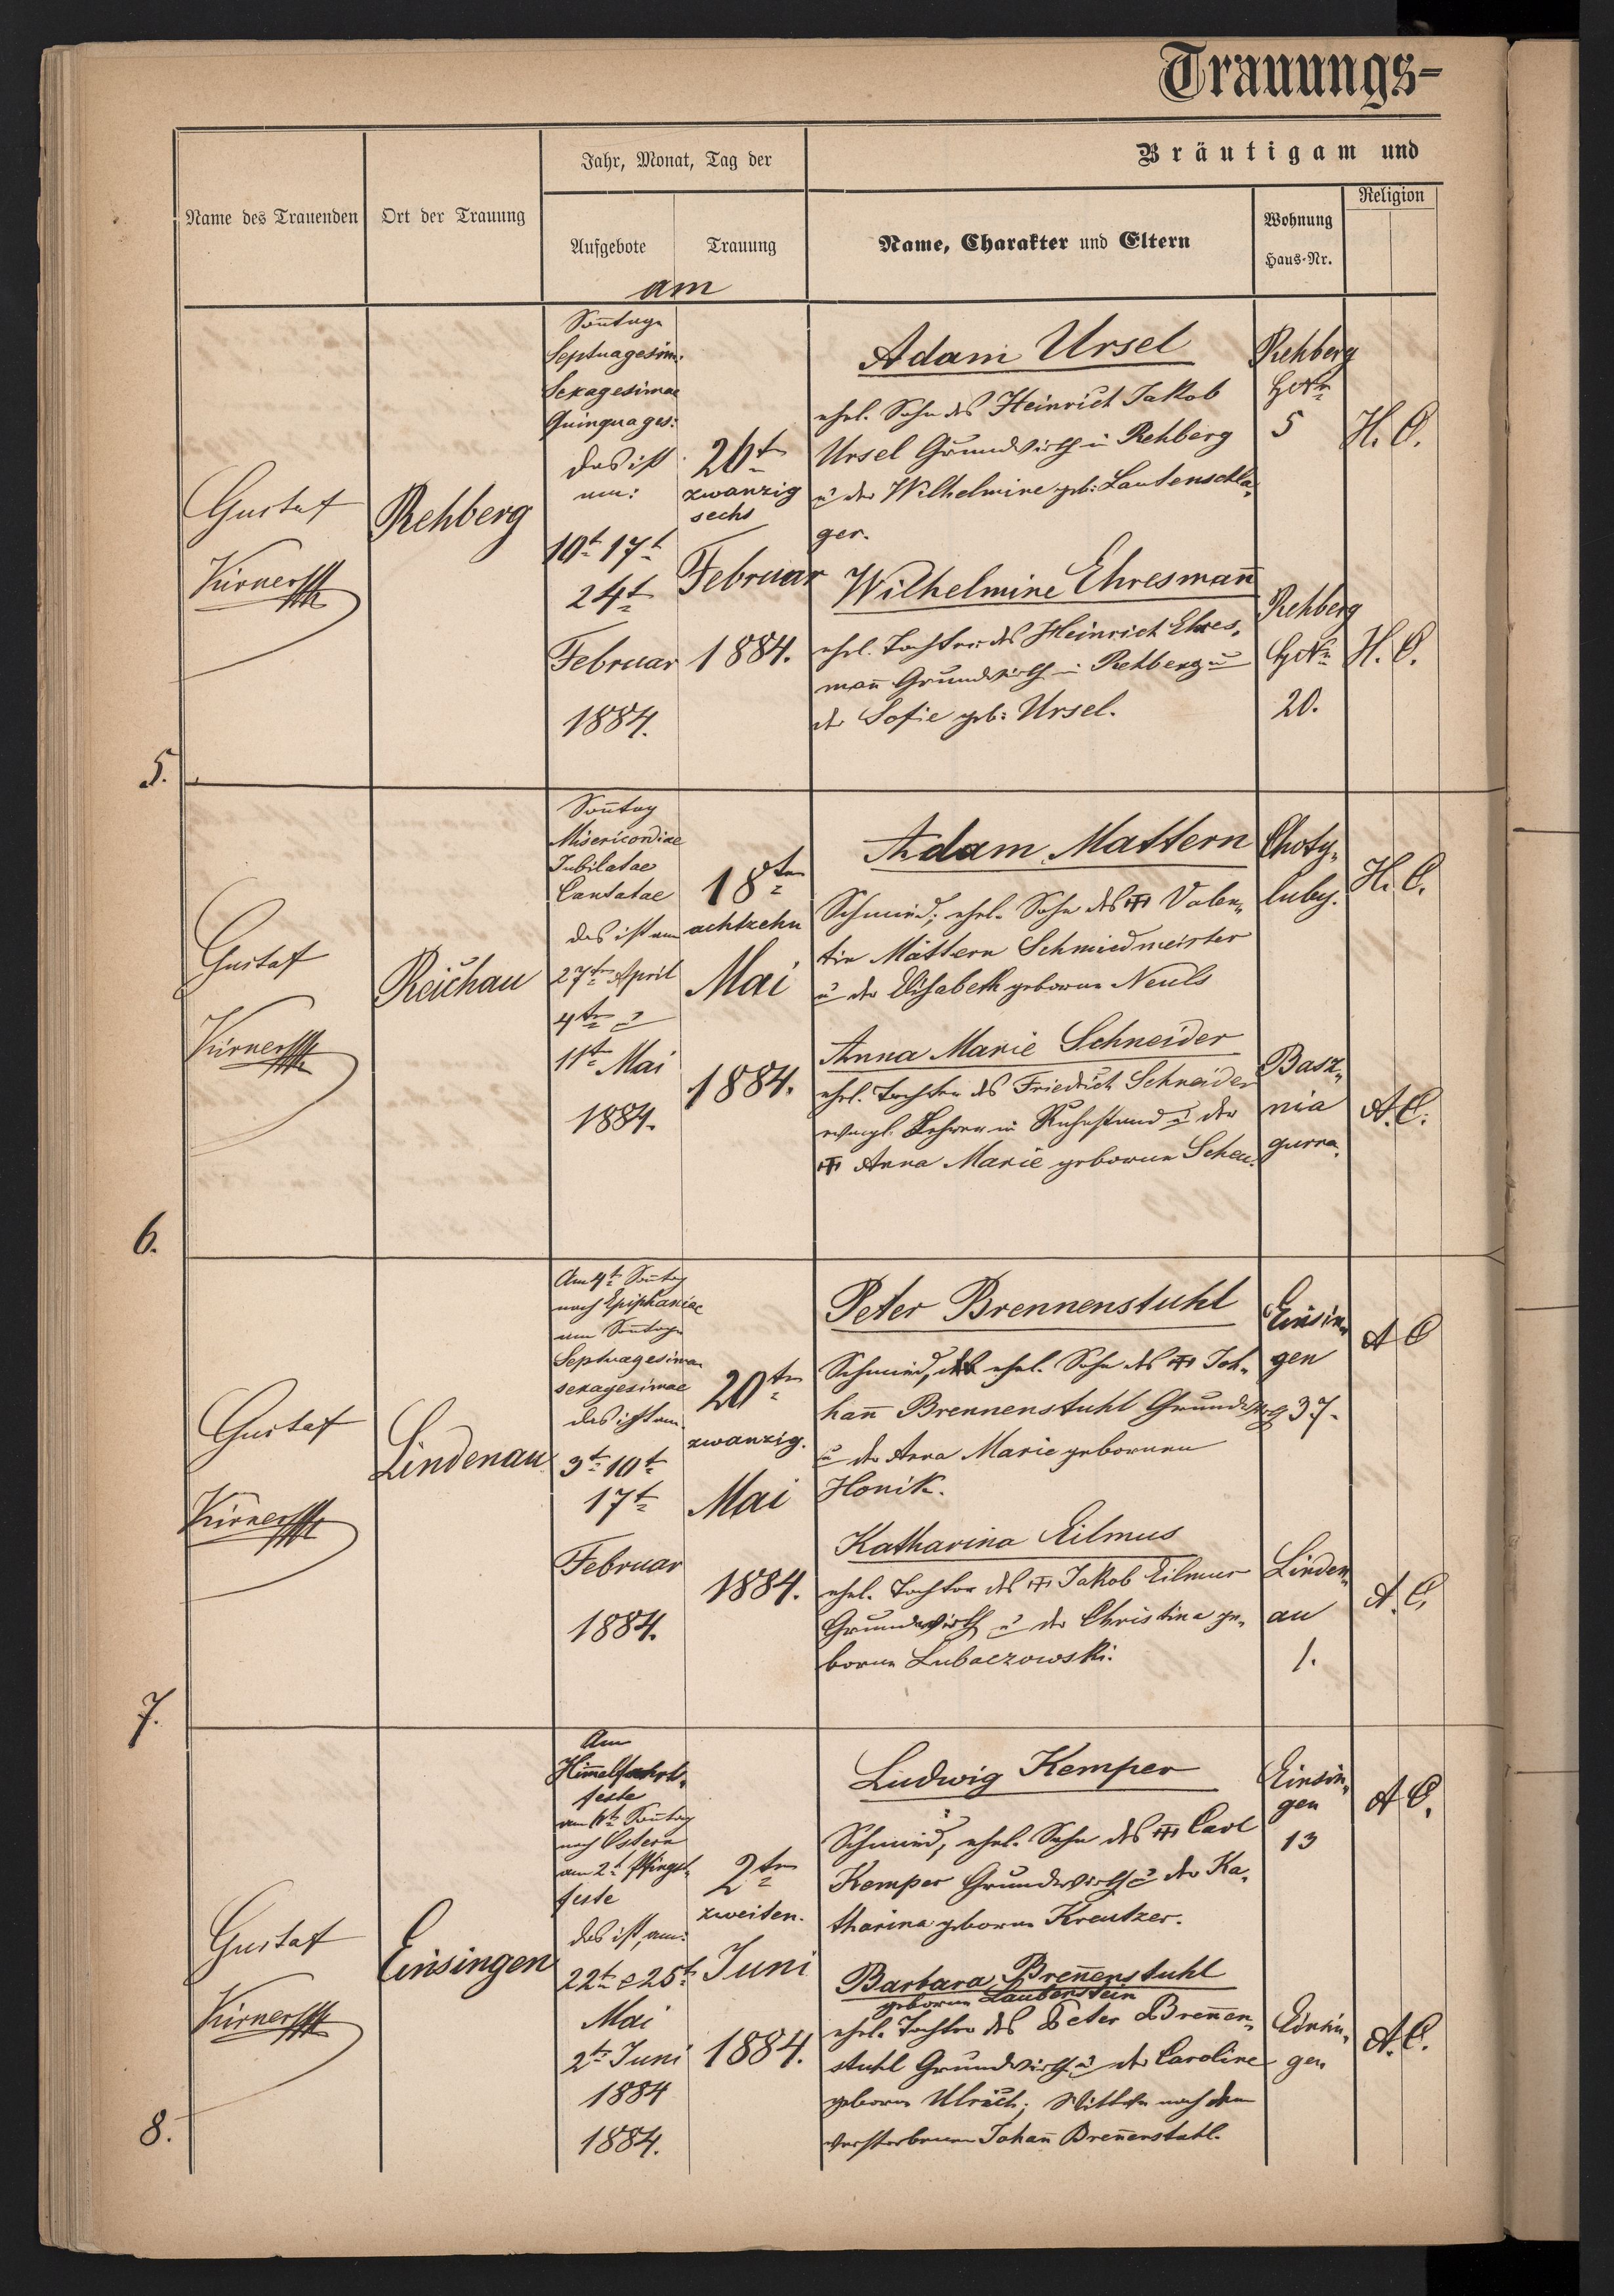 Trauungs-
Name des Trauenden
Ort der Trauung
Jahr, Monat, Tag der
Aufgebote
Trauung
am
Bräutigam und
Name, Charakter und Eltern
Wohnung
Haus-Nr.
Religion
5.
Gustaf
Kirner
Rehberg
Soñtage
Septuagesim:
Sexagesimae
Quinquages:
das ist
am:
10t 17t
24t
Februar
1884.
26t
zwanzig
sechs
Februar
1884.
Adam Ursel
ehel. Sohn des Heinrich Jakob
Ursel Grundwirth in Rehberg
u der Wilhelmine geb: Lautenschla-
ger.
Rehberg
HsNr
5
H. C.
Wilhelmine Ehresmañ
ehel. Tochter des Heinrich Ehres-
mañ Grundwirth in Rehberg u
der Sofie geb: Ursel.
Rehberg
HsNr
20.
H. C.
6.
Gustaf
Kirner
Reichau
Soñtag
Misericordiae
Jubilatae
Cantatae
das ist am
27ten April
4ten u
11t Mai
1884.
18ten
achtzehn
Mai
1884.
Adam Mattern
Schmied; ehel. Sohn des Valen-
tin Mattern Schmiedmeister
u der Elisabeth geborene Neuls
Choty-
luby.
H. C.
Anna Marie Schneider
ehel. Tochter des Friedrich Schneider
evangl. Lehrer in Ruhestand u der
Anna Marie geborene Scheu.
Basz-
nia
gurna.
A. C.
7.
Gustaf
Kirner
Lindenau
Am 4t Soñtag
nach Epiphaniae
am Soñtage
Septuagesimae
sexagesimae
das ist am
3t 10t
17t
Februar
1884.
20ten
zwanzig.
Mai
1884.
Peter Brennenstuhl
Schmied, ehel. Sohn des Joh-
hañ Brennenstuhl Grundwirth
u der Anna Marie geborenen
Honik.
Einsin-
gen
37.
A C
Katharina Eilmus
ehel. Tochter des Jakob Eilmus
Grundwirth u der Christina ge-
borene Lubaczowski.
Linden-
au
1.
A. C.
8.
Gustaf
Kirner
Einsingen
Am
Himelfahrts-
feste
am 6t Soñtag
nach Ostern
am 2t Pfingst-
feste
das ist, am:
22t u 25t
Mai
2ten Juni
1884
1884.
2ten
zweiten.
Juni
1884.
Ludwig Kemper
Schmied, ehel. Sohn des Carl
Kemper Grundwirth u der Ka-
tharina geborene Kreutzer.
Einsin-
gen
13
A C.
Barbara Breñenstuhl
geborene Laubenstein
ehel. Tochter des Peter Breñen-
stuhl Grundwirth u der Caroline
geborene Ulrich; Wittwe nach dem
verstorbenen Johañ Breñenstuhl.
Einsin-
gen
A. C.